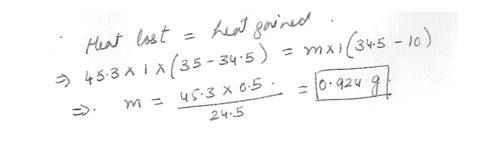 Heat lost = heat gained.
⇒ 45.3 × 1 × (35 - 34.5) = m×1 (34.5 - 10)
⇒. m = 45.3 × 0.5 / 24.5 = 0.924 g